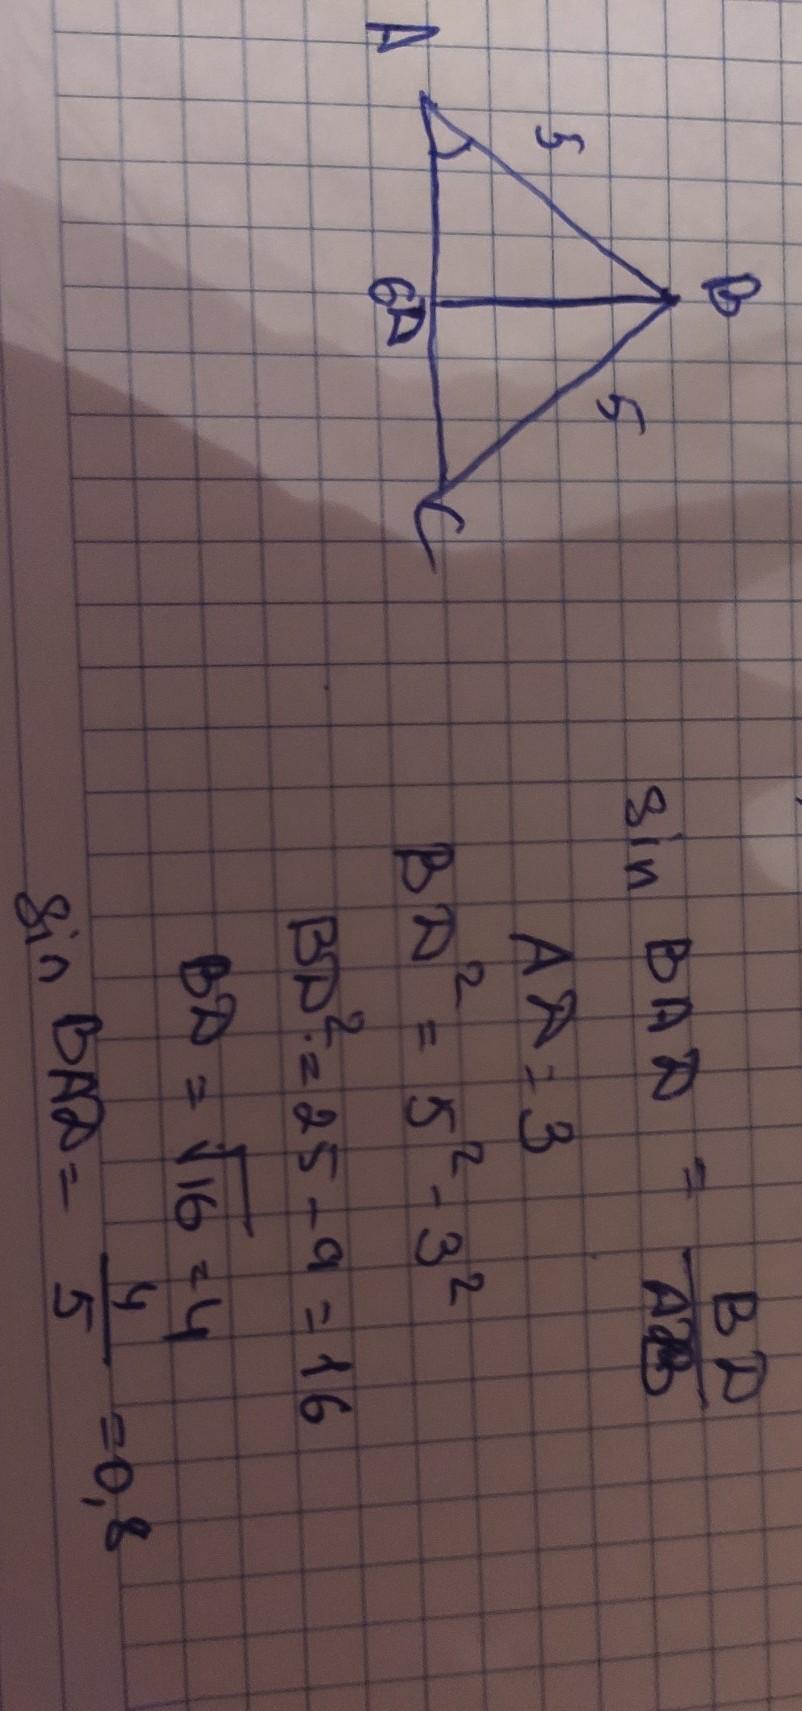 A
5
B
5
6
D
C
sin BAD = BD/AB
AD = 3
BD² = 5² - 3²
BD² = 25 - 9 = 16
BD = √16 = 4
sin BAD = 4/5 = 0,8